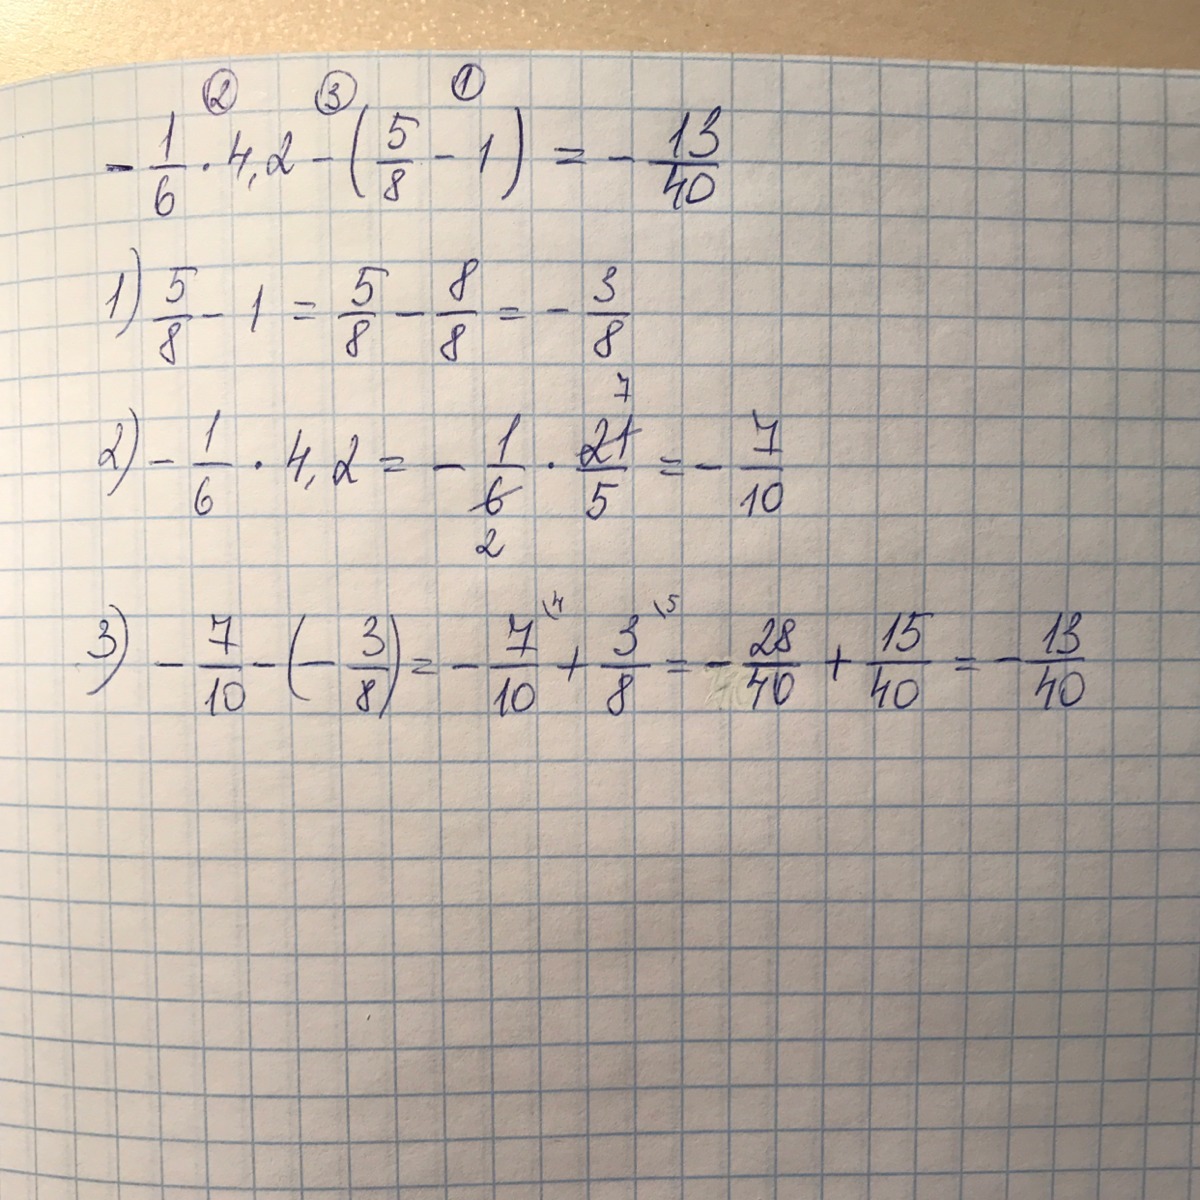 ② ③ ①
- 1/6 · 4,2 - (5/8 - 1) = - 13/40
1) 5/8 - 1 = 5/8 - 8/8 = - 3/8
7
2) - 1/6 · 4,2 = - 1/6 · 21/5 = - 7/10
2
\4 \5
3) - 7/10 - (- 3/8) = - 7/10 + 3/8 = - 28/40 + 15/40 = - 13/40